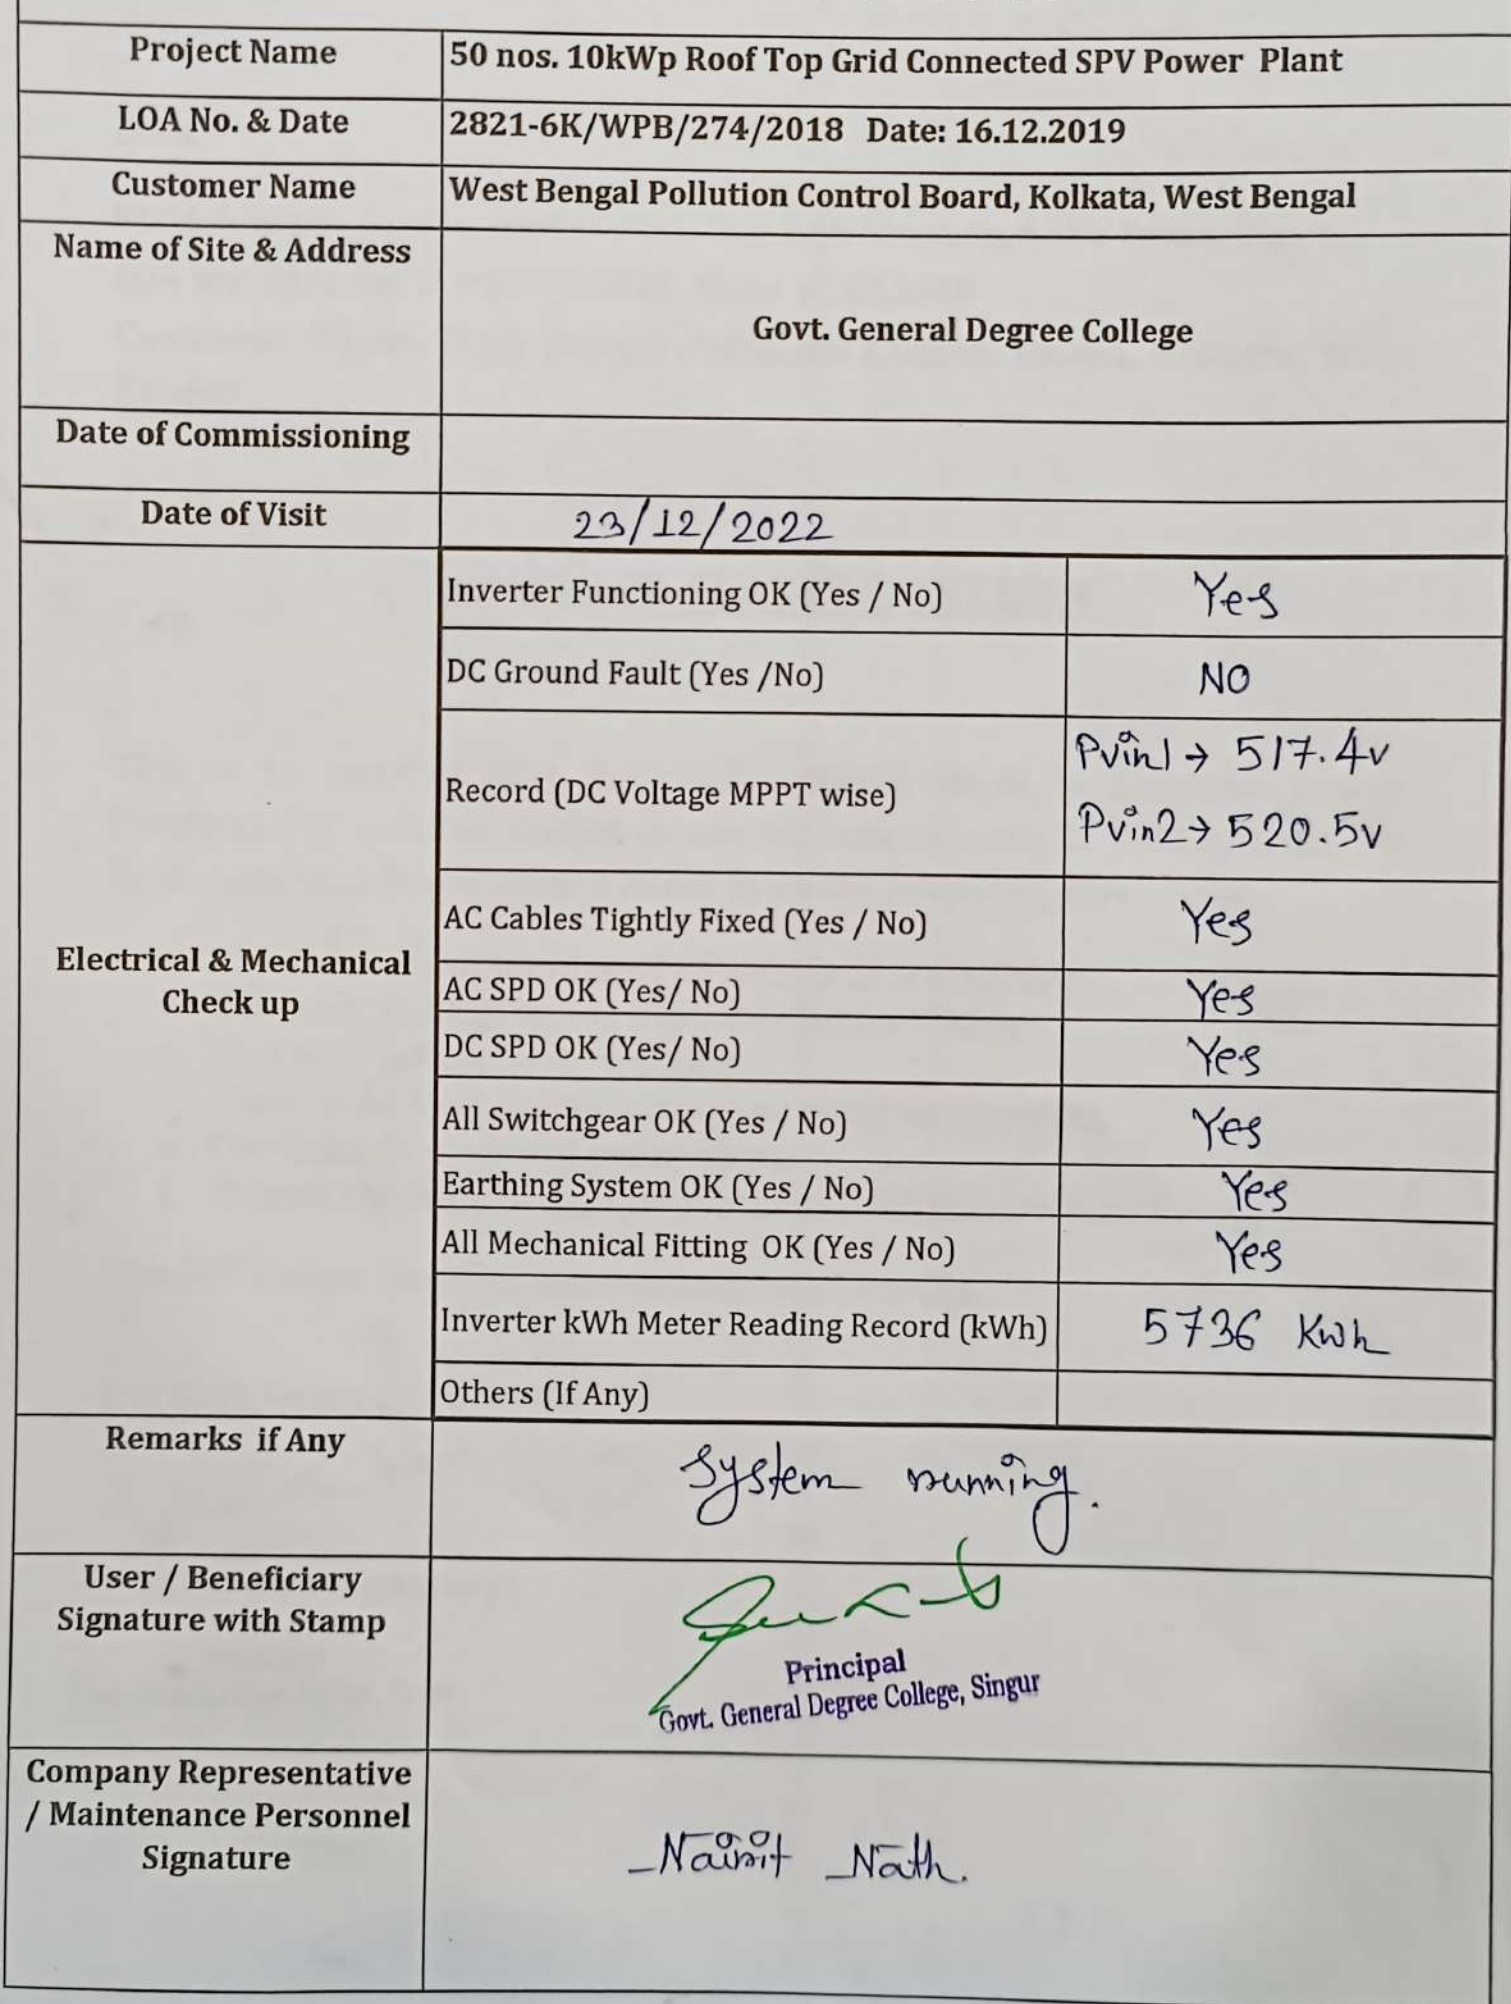 Project Name 50 nos. 10kWp Roof Top Grid Connected SPV Power Plant
LOA No. & Date 2821-6K/WPB/274/2018 Date: 16.12.2019
Customer Name West Bengal Pollution Control Board, Kolkata, West Bengal
Name of Site & Address
Govt. General Degree College
Date of Commissioning
Date of Visit 23/12/2022
Electrical & Mechanical
Check up
Inverter Functioning OK (Yes / No) Yes
DC Ground Fault (Yes /No) NO
Record (DC Voltage MPPT wise)
Pvin1 → 517.4v
Pvin2 → 520.5v
AC Cables Tightly Fixed (Yes / No) Yes
AC SPD OK (Yes/ No) Yes
DC SPD OK (Yes/ No) Yes
All Switchgear OK (Yes / No) Yes
Earthing System OK (Yes / No) Yes
All Mechanical Fitting OK (Yes / No) Yes
Inverter kWh Meter Reading Record (kWh) 5736 Kwh
Others (If Any)
Remarks if Any System running.
User / Beneficiary
Signature with Stamp
Principal
Govt. General Degree College, Singur
Company Representative
/ Maintenance Personnel
Signature
Nath.